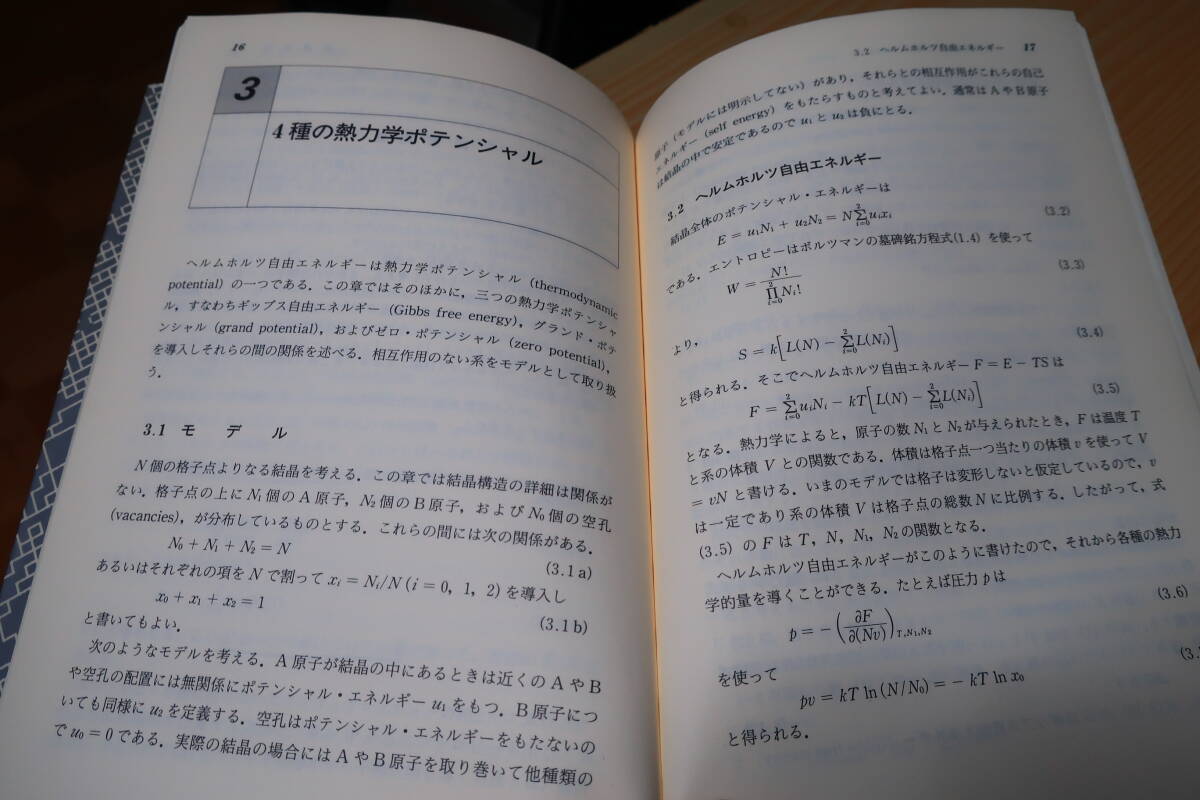 16
3
4種の熱力学ポテンシャル
ヘルムホルツ自由エネルギーは熱力学ポテンシャル (thermodynamic
potential) の一つである．この章ではそのほかに，三つの熱力学ポテンシャ
ル，すなわちギップス自由エネルギー (Gibbs free energy)，グランド・ポテ
ンシャル (grand potential)，およびゼロ・ポテンシャル (zero potential)，
を導入しそれらの間の関係を述べる．相互作用のない系をモデルとして取り扱
う．
3.1 モデル
N個の格子点よりなる結晶を考える．この章では結晶構造の詳細は関係が
ない．格子点の上に N₁個のA原子，N₂個のB原子，および N₀個の空孔
(vacancies)，が分布しているものとする．これらの間には次の関係がある．
N₀ + N₁ + N₂ = N (3.1a)
あるいはそれぞれの項をNで割って xᵢ = Nᵢ/N (i = 0, 1, 2) を導入し
x₀ + x₁ + x₂ = 1 (3.1b)
と書いてもよい．
次のようなモデルを考える．A原子が結晶の中にあるときは近くのAやB
や空孔の配置には無関係にポテンシャル・エネルギー u₁ をもつ．B原子につ
いても同様に u₂ を定義する．空孔はポテンシャル・エネルギーをもたないの
で u₀ = 0 である．実際の結晶の場合にはAやB原子を取り巻いて他種類の
3.2 ヘルムホルツ自由エネルギー 17
原子 (モデルには明示してない) があり，それらとの相互作用がこれらの自己
エネルギー (self energy) をもたらすものと考えてよい．通常はAやB原子
は結晶の中で安定であるので u₁ と u₂ は負にとる．
3.2 ヘルムホルツ自由エネルギー
結晶全体のポテンシャル・エネルギーは
E = u₁N₁ + u₂N₂ = N∑²ᵢ₌₀uᵢxᵢ (3.2)
である．エントロピーはボルツマンの墓碑銘方程式(1.4) を使って
W = N! / ∏²ᵢ₌₀Nᵢ! (3.3)
より，
S = k[L(N) − ∑²ᵢ₌₀L(Nᵢ)] (3.4)
と得られる．そこでヘルムホルツ自由エネルギー F = E − TS は
F = ∑²ᵢ₌₀uᵢNᵢ − kT[L(N) − ∑²ᵢ₌₀L(Nᵢ)] (3.5)
となる．熱力学によると，原子の数 N₁ と N₂ が与えられたとき，F は温度 T
と系の体積 V との関数である．体積は格子点一つ当たりの体積 v を使って V
= vN と書ける．いまのモデルでは格子は変形しないと仮定しているので，v
は一定であり系の体積 V は格子点の総数 N に比例する．したがって，式
(3.5) の F は T, N, N₁, N₂ の関数となる．
ヘルムホルツ自由エネルギーがこのように書けたので，それから各種の熱力
学的量を導くことができる．たとえば圧力 p は
p = −(∂F/∂(Nv))T,N₁,N₂ (3.6)
を使って
pv = kT ln(N/N₀) = −kT ln x₀ (3.
と得られる．